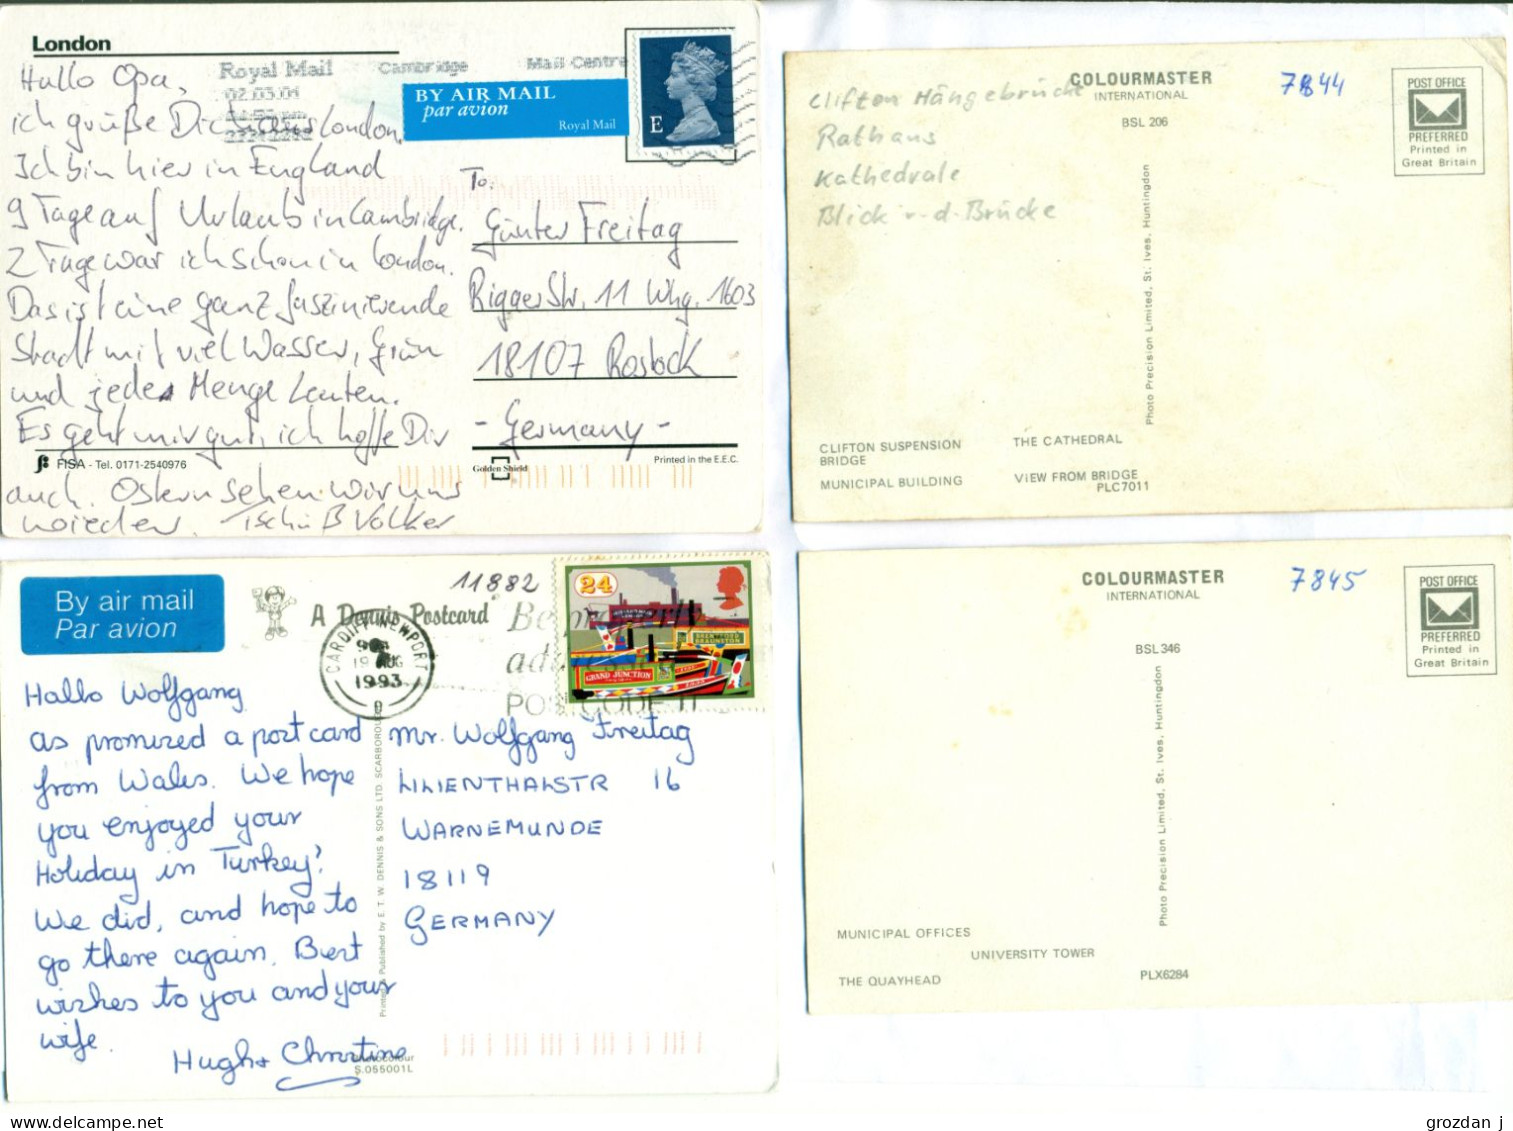 London
Royal Mail
Cambridge
Mail Centre
02.03.01
BY AIR MAIL
par avion
Royal Mail
E
Hallo Opa,
ich grüße Dich aus London.
Ich bin hier in England
9 Tage auf Urlaub in Cambridge.
2 Tage war ich schon in London.
Das ist eine ganz faszinierende
Stadt mit viel Wasser, Grün
und jede Menge Leuten.
Es geht mir gut, ich hoffe Dir
auch. Ostern sehen wir uns
wieder. Tschüß Volker
To:
Günter Freitag
Rigaer Str. 11 Whg. 1603
18107 Rostock
- Germany -
FISA - Tel. 0171-2540976
Golden Shield
Printed in the E.E.C.
Clifton Hängebrücke
Rathaus
Kathedrale
Blick v. d. Brücke
COLOURMASTER
INTERNATIONAL
BSL 206
7844
POST OFFICE
PREFERRED
Printed in
Great Britain
Photo Precision Limited, St. Ives, Huntingdon
CLIFTON SUSPENSION
BRIDGE
THE CATHEDRAL
MUNICIPAL BUILDING
VIEW FROM BRIDGE
PLC7011
By air mail
Par avion
A Dennis Postcard
11882
CARDIFF NEWPORT
19 AUG
1993
Be properly
addressed
POSTCODE IT
24
BRENTFORD
BRAUNSTON
GRAND JUNCTION
Hallo Wolfgang
as promized a postcard
from Wales. We hope
you enjoyed your
Holiday in Turkey?
We did, and hope to
go there again. Best
wishes to you and your
wife.
Hugh + Christine
Mr. Wolfgang Freitag
LILIENTHALSTR 16
WARNEMUNDE
18119
GERMANY
Printed & Published by E. T. W. DENNIS & SONS LTD. SCARBOROUGH
Photocolour
S.055001L
COLOURMASTER
INTERNATIONAL
BSL 346
7845
POST OFFICE
PREFERRED
Printed in
Great Britain
Photo Precision Limited, St. Ives, Huntingdon
MUNICIPAL OFFICES
UNIVERSITY TOWER
THE QUAYHEAD
PLX6284
grozdan j